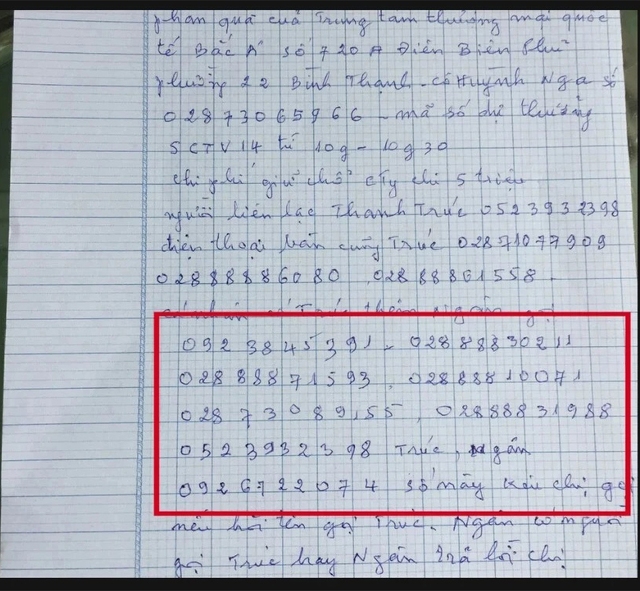 phần quà của Trung tâm thương mại quốc
tế Bắc Á số 720A Điện Biên Phủ
phường 22 Bình Thạnh. cô Huỳnh Nga số
02873065966 - mã số dự thưởng
SCTV14 từ 10g - 10g30
chi phí giữ chỗ cty chi 5 triệu
người liên lạc Thanh Trúc 0523932398
điện thoại bàn cũng Trúc 02871077909
02888886080, 02888861558.
Trúc thêm Ngân gọi
0923845391 - 02888830211
02888871593, 02888810071
02873089155, 02888831988
0523932398 Trúc, Ngân
0926722074 số này kêu chị gọi
nếu hỏi tên gọi Trúc. Ngân có người
gọi Trúc hay Ngân trả lời chị